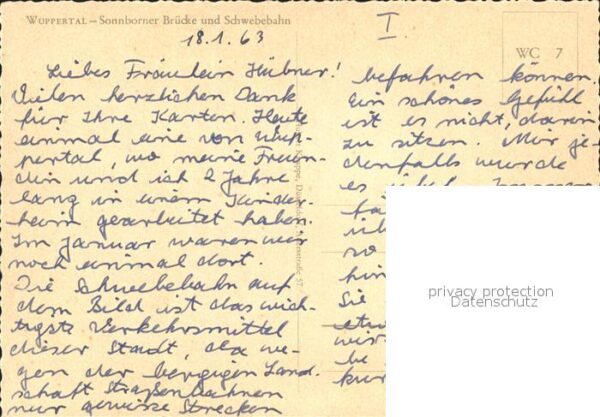 WUPPERTAL – Sonnborner Brücke und Schwebebahn
18.1.63
I
WC 7
Liebes Fräulein Hübner!
Vielen herzlichen Dank
für Ihre Karten. Heute
einmal eine von Wup-
pertal, wo meine Freun-
din und ich 2 Jahre
lang in einem Kinder-
heim gearbeitet haben.
Im Januar waren wir
noch einmal dort.
Die Schwebebahn auf
dem Bild ist das wich-
tigste Verkehrsmittel
dieser Stadt, da we-
gen der bergigen Land-
schaft Straßenbahnen
nur gewisse Strecken
befahren können.
Ein schönes Gefühl
ist es nicht, darin
zu sitzen. Mir je-
denfalls wurde
es
so
Sie
wir
be
kur
privacy protection
Datenschutz